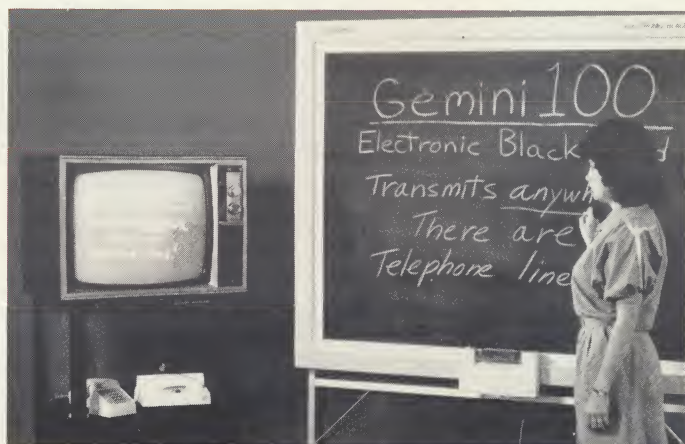 Gemini 100
Electronic Black
Transmits anywh
There are
Telephone line